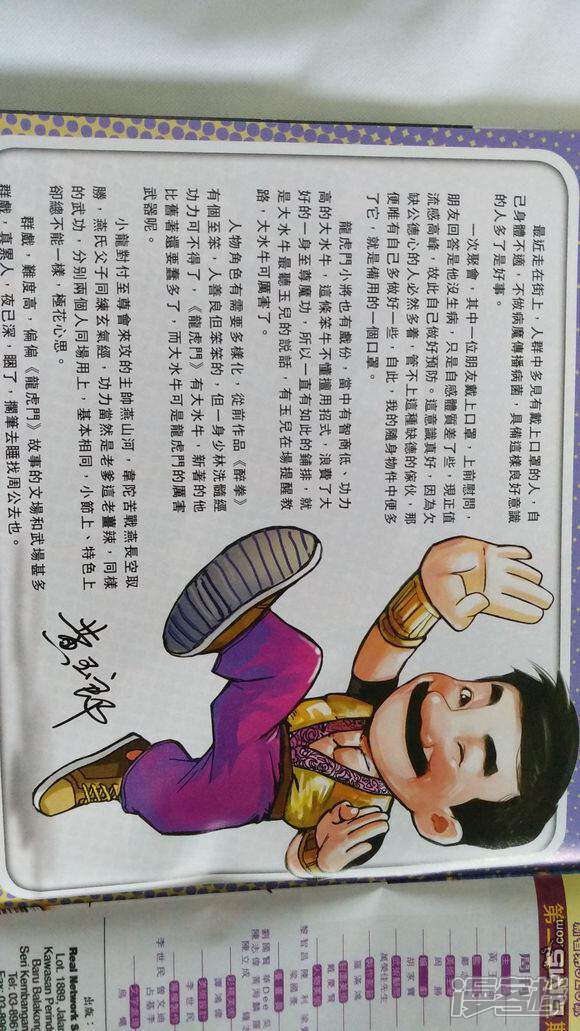 最近走在街上，人群中多見有戴上口罩的人，自
己身體不適，不做病魔傳播病菌，具備這樣良好意識
的人多了是好事。
一次聚會，其中一位朋友戴上口罩，上前慰問，
朋友回答是他沒生病，只是自感體質差了些，現正值
流感高峰，故此自己做好預防。這意識真好，因為欠
缺公德心的人必然多着，管不上這種缺德的傢伙，那
便唯有自己多做好一些，自此，我的隨身物件中便多
了它，就是備用的一個口罩。
龍虎門小將也有戲份，當中有智商低、功力
高的大水牛，這條笨牛不懂擅用招式，浪費了大
好的一身至尊魔功，所以一直有如此的鋪排，就
是大水牛最聽玉兒的説話，有玉兒在場提醒教
路，大水牛可厲害了。
人物角色有需要多樣化，從前作品《醉拳》
有個至笨，人善良但笨笨的，但一身少林洗髓經
功力可不得了，《龍虎門》有大水牛，新著的他
比舊著還要蠢多了，而大水牛可是龍虎門的厲害
武器呢。
小龍對付至尊會來攻的主帥燕山河，韋陀苦戰燕長空取
勝，燕氏父子同練玄氣經，功力當然是老爹這老薑辣，同樣
的武功，分別兩個人同場用上，基本相同，小節上、特色上
卻總不能一樣，極花心思。
群戲，難度高，偏偏《龍虎門》故事的文場和武場甚多
群戲，真累人，夜已深，睏了，擱筆去睡找周公去也。
黃玉郎
.com
第一
周勝
胡家寶
萬榮佳先生
羅滿鴻
戴慶賢
梁國豪
黎智昌 陳利
劉國賢 華Dee
陳志偉
陳立成
譚鴻偉
李世民
李世民 曾文迪
占基李
出版：
Real Network S
Lot. 1889, Jalan
Kawasan Perind
Baru Balakong
Seri Kembangan
Tel: 03-896
Fax: 03-896
漫客栈